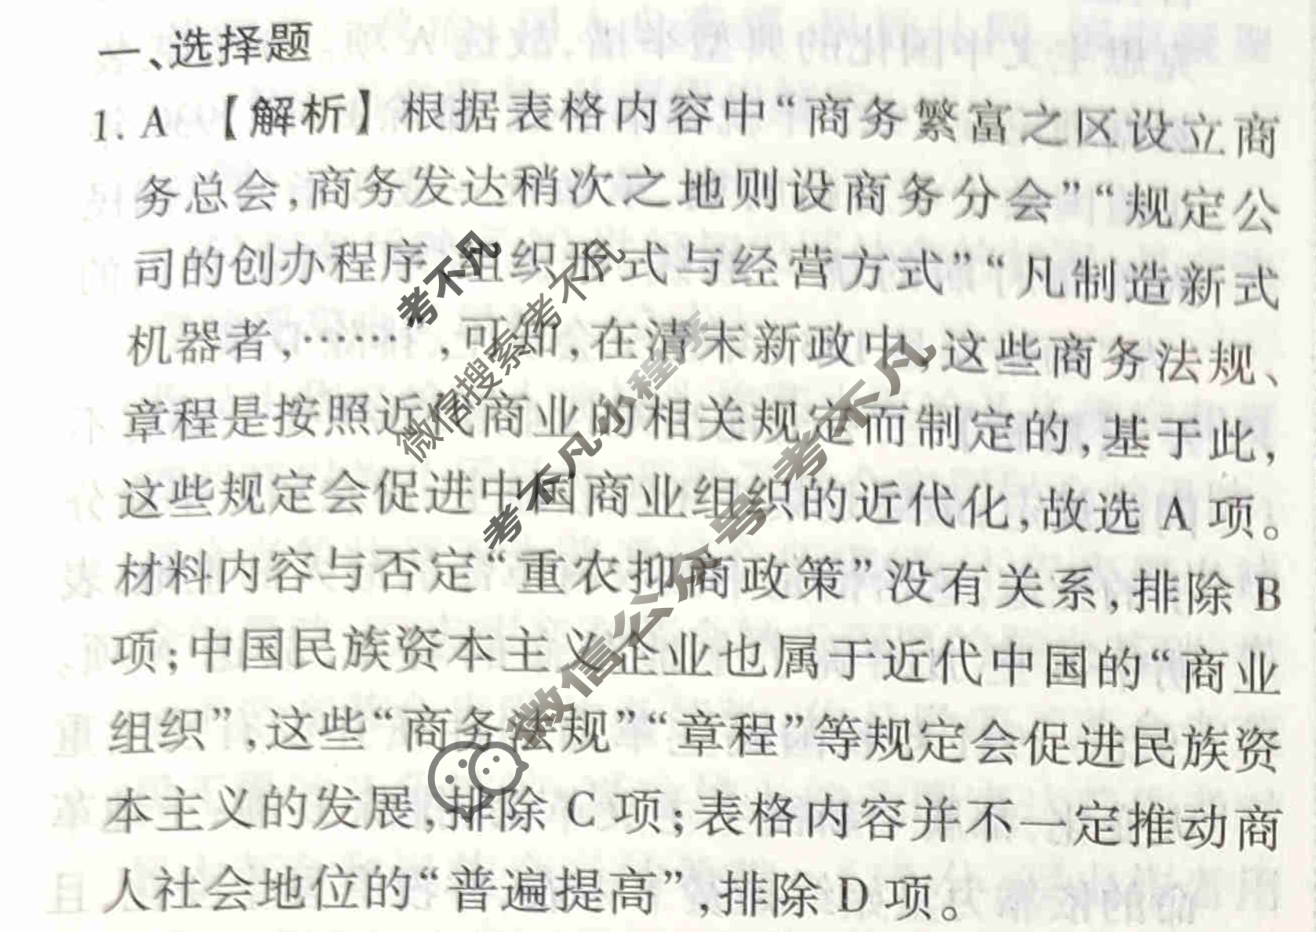 一、选择题
1. A 【解析】根据表格内容中“商务繁富之区设立商
务总会,商务发达稍次之地则设商务分会”“规定公
司的创办程序、组织形式与经营方式”“凡制造新式
机器者,……,可知,在清末新政中,这些商务法规、
章程是按照近代商业的相关规定而制定的,基于此,
这些规定会促进中国商业组织的近代化,故选 A 项。
材料内容与否定“重农抑商政策”没有关系,排除 B
项;中国民族资本主义企业也属于近代中国的“商业
组织”,这些“商务法规”“章程”等规定会促进民族资
本主义的发展,排除 C 项;表格内容并不一定推动商
人社会地位的“普遍提高”,排除 D 项。
考不凡
微信搜索考不凡
考不凡小程序
微信公众号考不凡